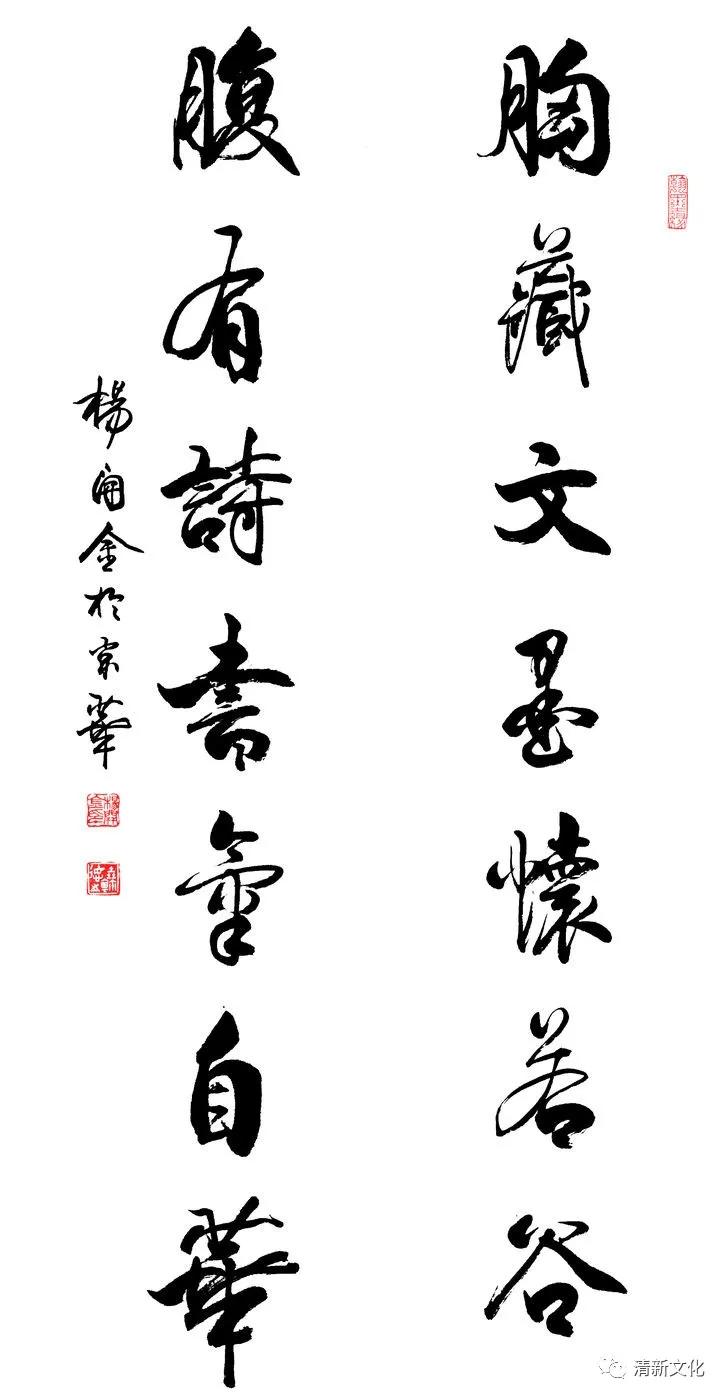 胸藏文墨懷若谷
腹有詩書氣自華
楊開金於京華
清新文化